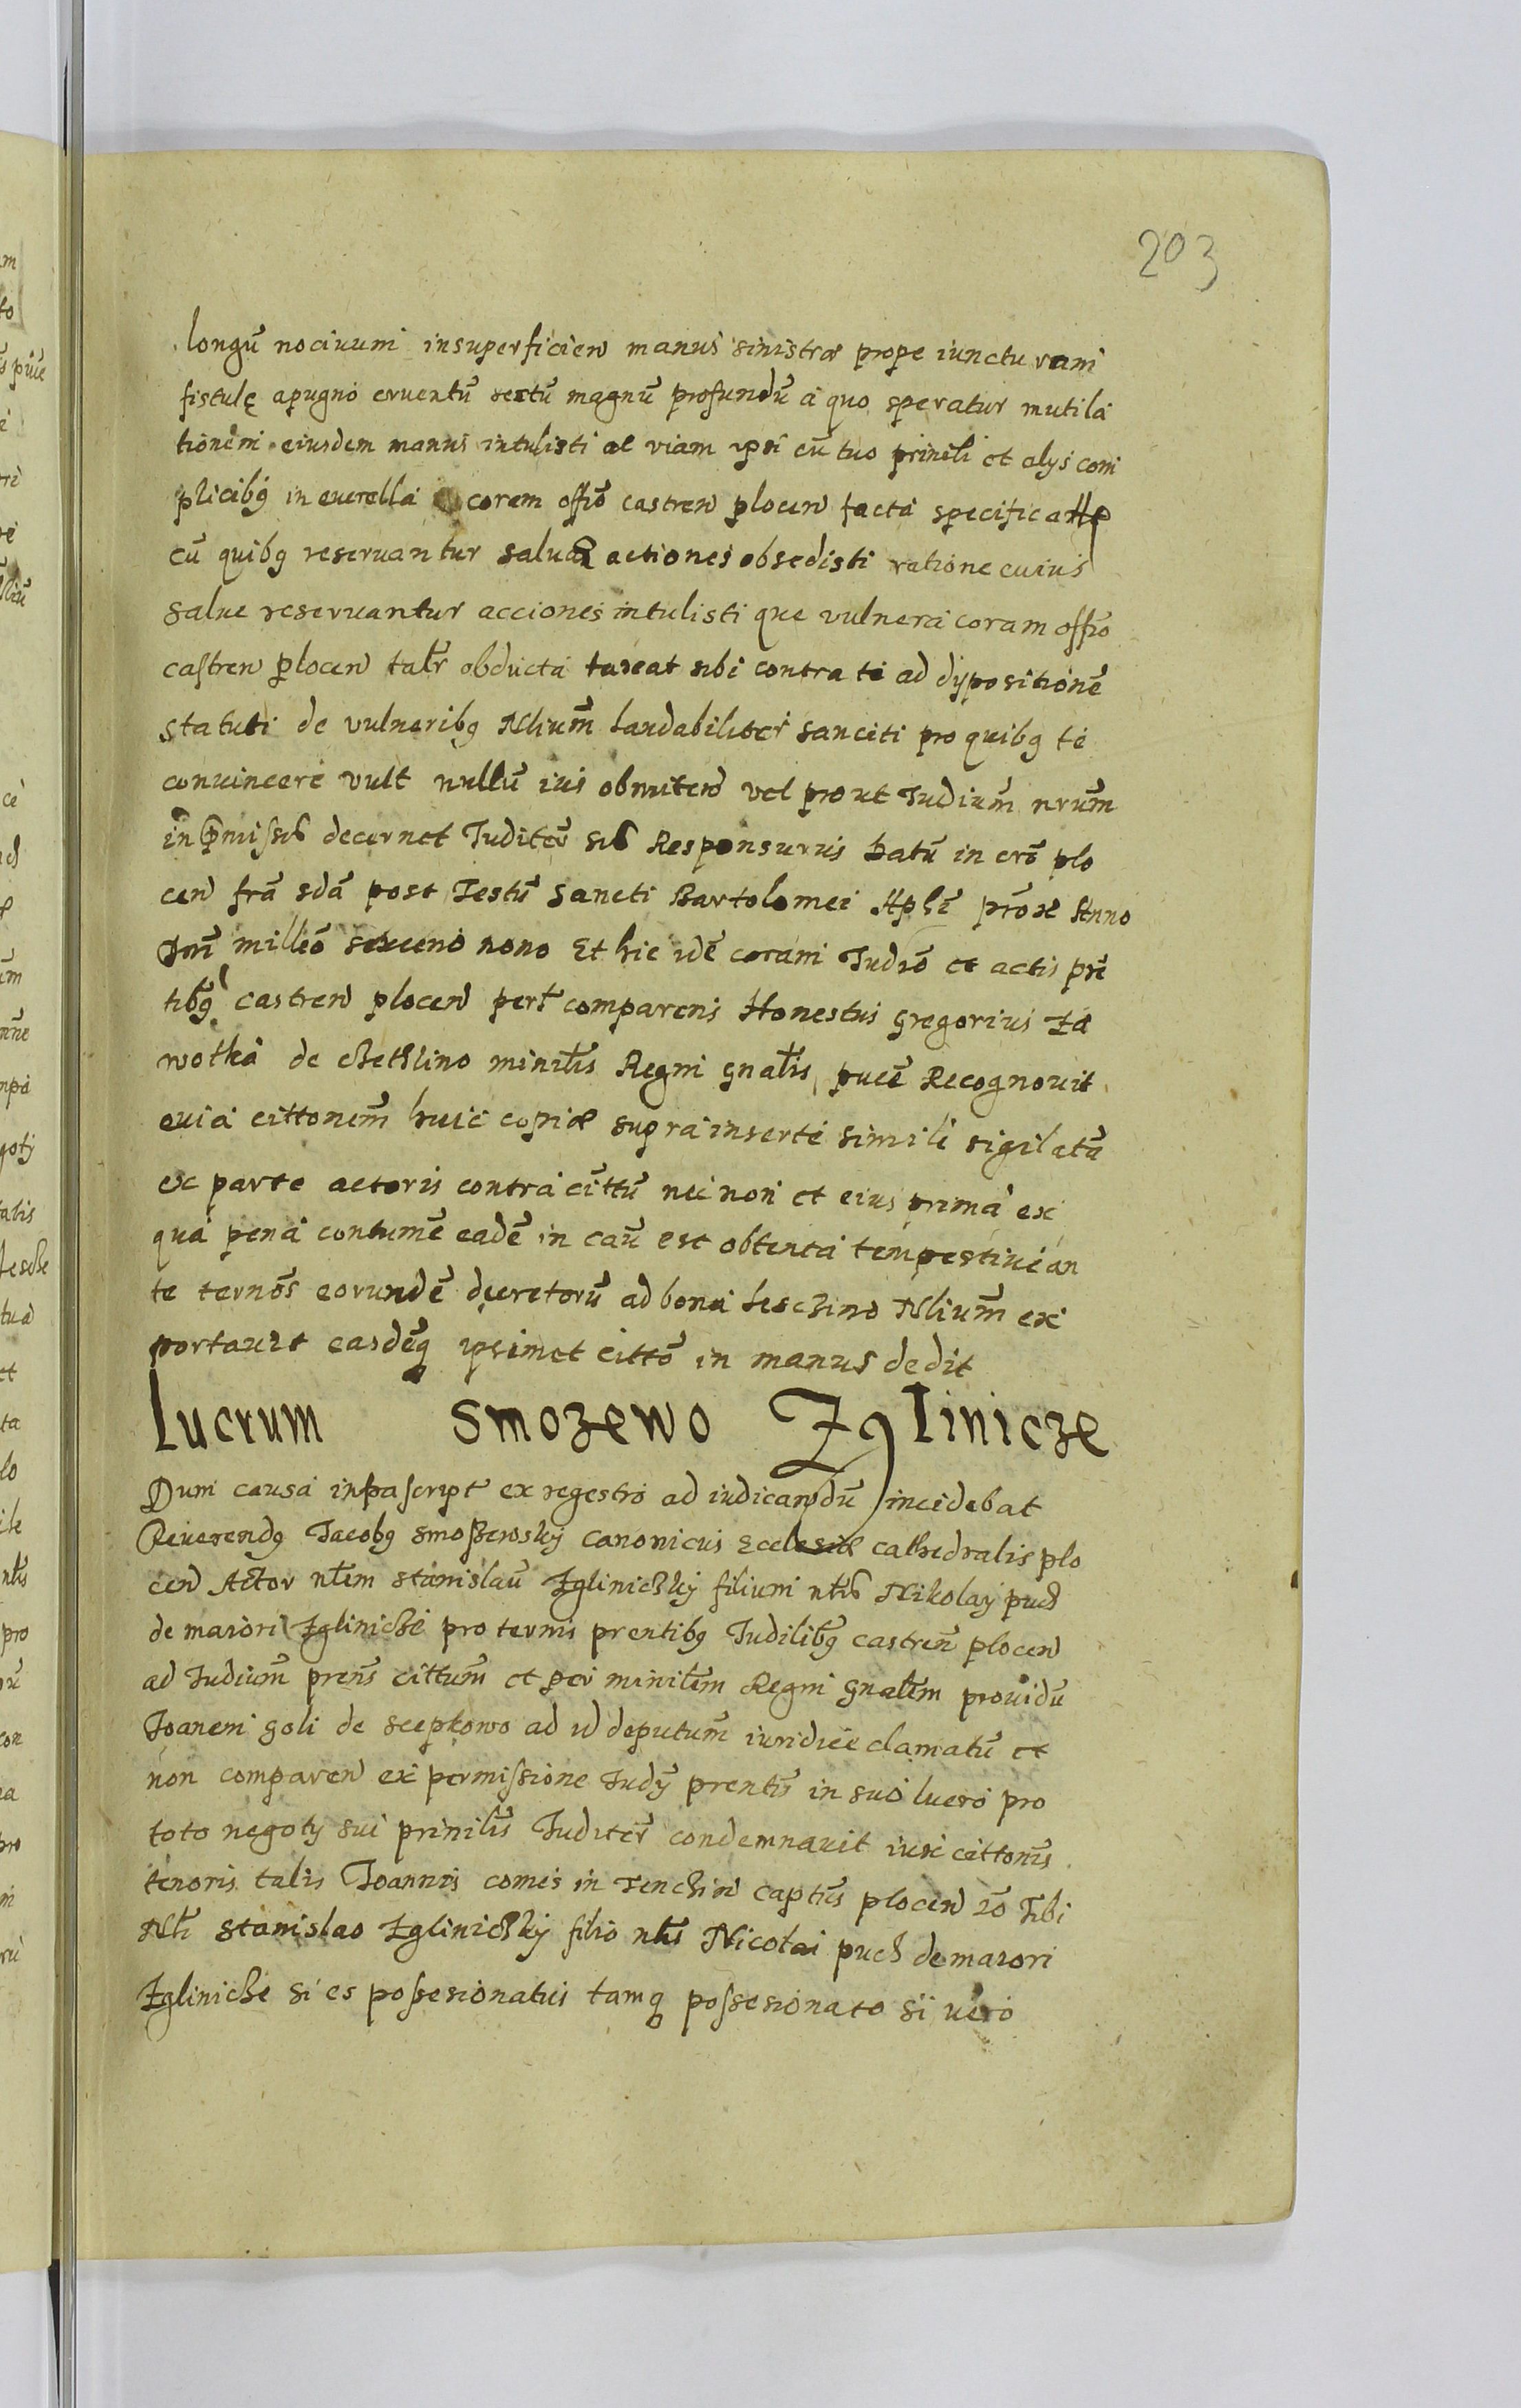 203
longū nociuum insuperficiem manus sinistræ prope iunctu ram
fistulę apugno cruentū sectū magnū profundū a quo speratur mutila
tionem eiusdem manus intulisti ac viam ipsi cū tuo prinĉli et alys com
plicibꝫ in querella coram offīo castren plocen facta specificatis
cū quibꝫ reseruantur saluæ actiones obsedisti ratione cuius
salue reseruantur acciones intulisti que vulnera coram offīo
castren plocen talr̄ obducta taxeat sibi contra te ad dysposisionē
statuti de vulneribꝫ Nlium̄ laudabiliter sanciti pro quibꝫ te
conuincere vult nullū ius obmitten vel prout Iudium̄ nrum̄
in p̄missis decernet Iuditer̄ sis Responsurus Datū in crō plo
cen fr̄a sdā post Festū Sancti Bartolomei Apli prōx Anno
Dni milleō sexceno nono Et hic idē coram Iudīo et actis pn̄
tibꝫ castren plocen pertr comparens Honestus Gregorius Za
wotka de Chethlino ministīs Regni gnalis, pucē Recognouit
quia cittonem̄ huic copiæ supra inserte simile sigilatā
ex parte actoris contra cittū nec non et eius prima ex
qua pena contumē eadē in caū est obtenta tempestiue an
te termōs eorundē decretorū ad bona Leschino Nlium̄ ex
portauit easdēqꝫ ipsimet cittō in manus dedit
Lucrum Smozewo Zglinicze
Dum causa infrascript ex regestro ad iudicandū incidebat
Reuerendꝫ Jacobꝫ Smoszewsky canonicus Ecclesiæ cathedralis plo
cen Actor nlem Stanislaū Zglinichky filium nlis Nikolay puch
de maiori Zgliniche pro termis prentibꝫ Iudilibꝫ castren plocen
ad Iudium̄ prens cittum̄ et per minilem Regni gnalem prouidū
Joanem Goli de scephowo ad id deputum̄ iuridice clamatū et
non comparen ex permissione Iudy prentis in suo lucro pro
toto negoty sui prinilis Iuditer̄ condemnauit iux cittonis
tenoris talis Joannes comes in Tenchin captus plocen zo Tibi
Nli Stanislao Zglinichky filio nlis Nicolai puch de maiori
Zgliniche si es possesionatus tamqꝫ possesionato si vero